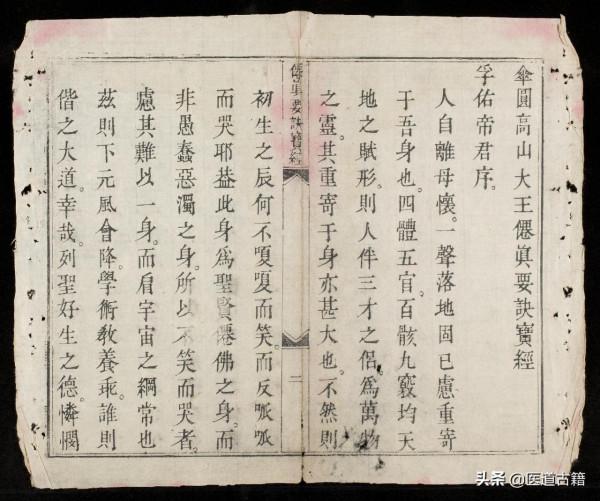 傘圓高山大王僊眞要訣寶經
孚佑帝君序。
人自離母懷。一聲落地固已慮重寄
于吾身也。四體五官。百骸九竅。均天
地之賦形。則人伴三才之侶。爲萬物
之靈。其重寄于身亦甚大也。不然則
僊眞要訣寶經
二
初生之辰何不嗄嗄而笑。而反呱呱
而哭耶。葢此身爲聖賢僊佛之身。而
非愚蠢惡濁之身。所以不笑而哭者。
慮其難以一身。而肩宇宙之綱常也
茲則下元風會降。學術教養乖。誰則
偕之大道。幸哉。列聖好生之德。憐憫
头条 @医道古籍